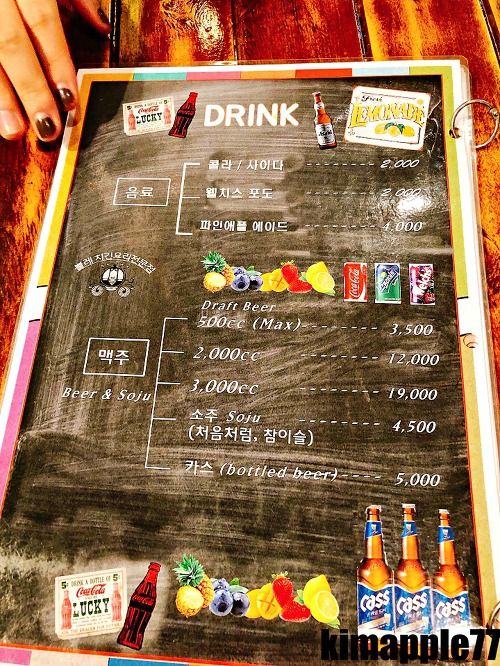 DRINK A BOTTLE OF
Coca-Cola
LUCKY
DRINK
Fresh
LEMONADE
음료
콜라 / 사이다 2,000
웰치스 포도 2,000
파인애플 에이드 4,000
치킨요리전문점
Coca-Cola
Draft Beer
맥주
Beer & Soju
500cc (Max) 3,500
2,000cc 12,000
3,000cc 19,000
소주 Soju 4,500
(처음처럼, 참이슬)
카스 (bottled beer) 5,000
5¢ DRINK A BOTTLE OF 5¢
Coca-Cola
LUCKY
Coca-Cola
Cass Cass Cass
FRESH
kimapple77